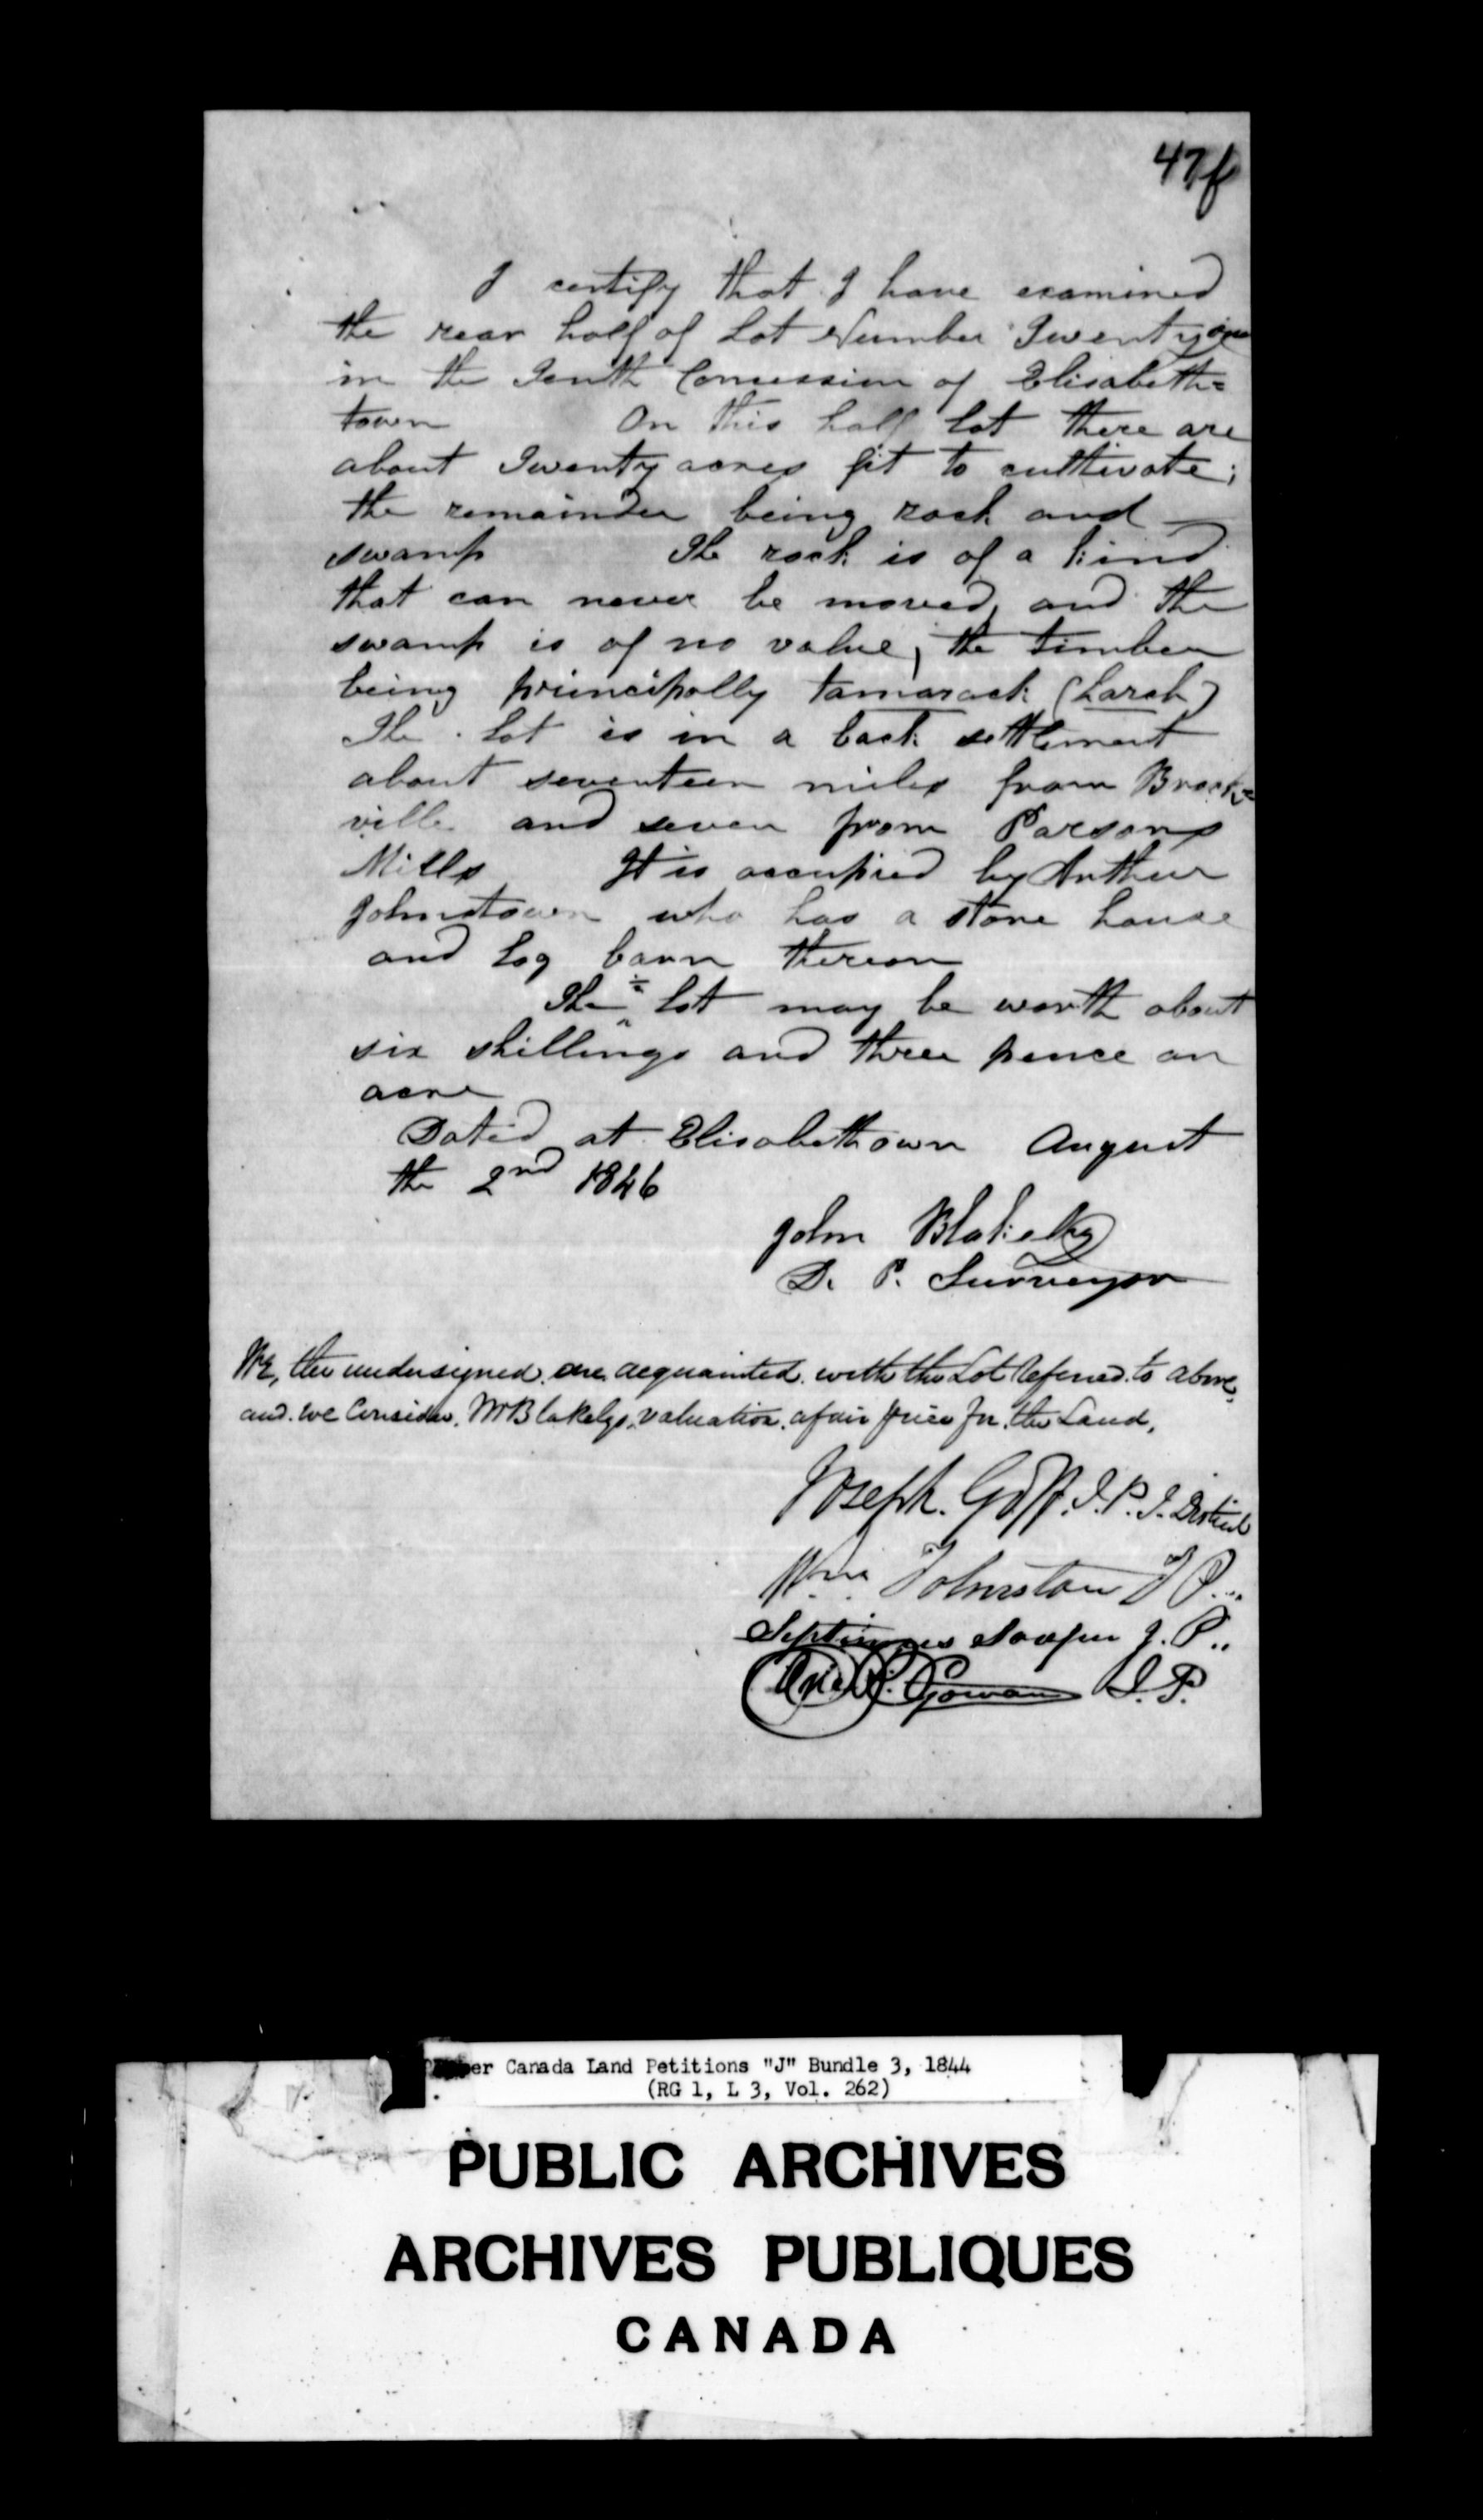 47f
I certify that I have examined
the rear half of Lot Number Twenty one
in the Tenth Concession of Elisabeth=
town On this half lot there are
about Twenty acres fit to cultivate;
the remainder being rock and
swamp The rock is of a kind
that can never be moved, and the
swamp is of no value, the timber
being principally tamarack (Larch)
The Lot is in a back settlement
about seventeen miles from Brock=
ville and seven from Parsons
Mills It is occupied by Arthur
Johnstown who has a stone house
and Log barn thereon
The ½ Lot may be worth about
six shillings and three pence an
acre
Dated at Elisabethown August
the 2nd 1846
John Blakely
D. P. Surveyor
We, the undersigned are acquainted with the Lot Refered to above,
and we Consider, Mr Blakelys valuation a fair price for the Land,
Joseph Goff. J. P. J. District
Wm Johnston J P..
Septimus Soaper J. P..
Ogle R. Gowan J. P.
er Canada Land Petitions "J" Bundle 3, 1844
(RG 1, L 3, Vol. 262)
PUBLIC ARCHIVES
ARCHIVES PUBLIQUES
CANADA